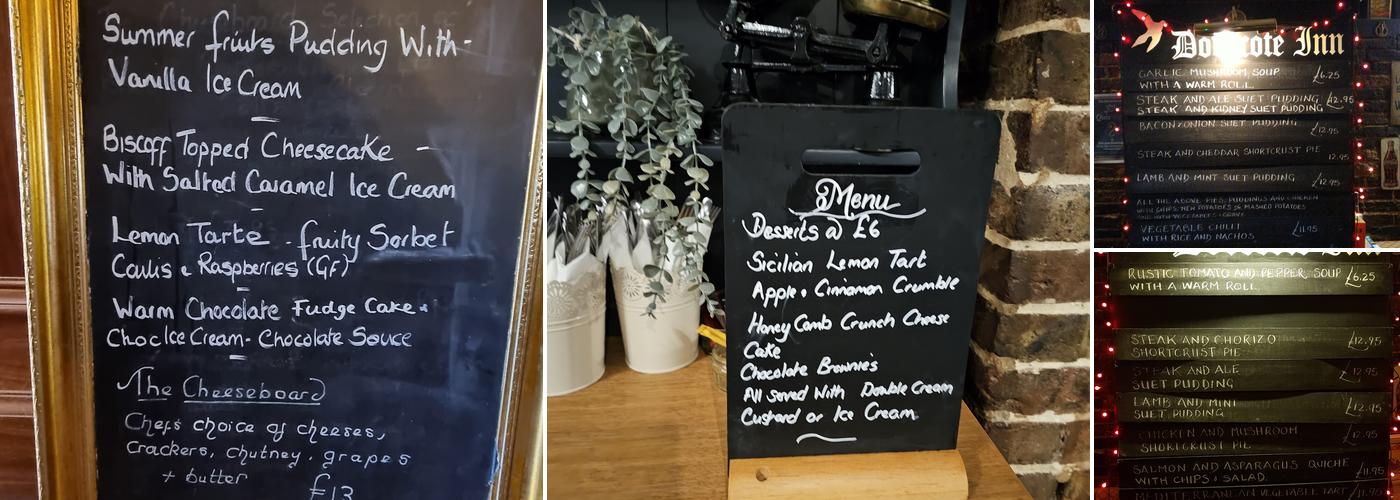 Summer fruits Pudding With-
Vanilla Ice Cream
Biscoff Topped Cheesecake -
With Salted Caramel Ice Cream
Lemon Tarte - fruity Sorbet
Coulis & Raspberries (GF)
Warm Chocolate Fudge Cake -
Choc Ice Cream - Chocolate Sauce
The Cheeseboard
Chefs choice of cheeses,
crackers, chutney, grapes
+ butter £13
Menu
Desserts @ £6
Sicilian Lemon Tart
Apple & Cinnamon Crumble
Honey Comb Crunch Cheese
Cake
Chocolate Brownies
All Served With Double Cream
Custard or Ice Cream
Inn
GARLIC MUSHROOM SOUP £6.25
WITH A WARM ROLL
STEAK AND ALE SUET PUDDING £12.95
STEAK AND KIDNEY SUET PUDDING
BACON+ONION SUET PUDDING £12.95
STEAK AND CHEDDAR SHORTCRUST PIE 12.95
LAMB AND MINT SUET PUDDING £12.95
ALL THE ABOVE PIES, PUDDINGS AND CHICKEN
WITH CHIPS, NEW POTATOES OR MASHED POTATOES
VEGETABLE CHILLI £11.95
WITH RICE AND NACHOS
RUSTIC TOMATO AND PEPPER SOUP £6.25
WITH A WARM ROLL
STEAK AND CHORIZO £12.95
SHORTCRUST PIE
STEAK AND ALE £12.95
SUET PUDDING
LAMB AND MINT £12.95
SUET PUDDING
CHICKEN AND MUSHROOM £12.95
SHORTCRUST PIE
SALMON AND ASPARAGUS QUICHE £11.95
WITH CHIPS + SALAD
MEDITERRANEAN VEGETABLE TART